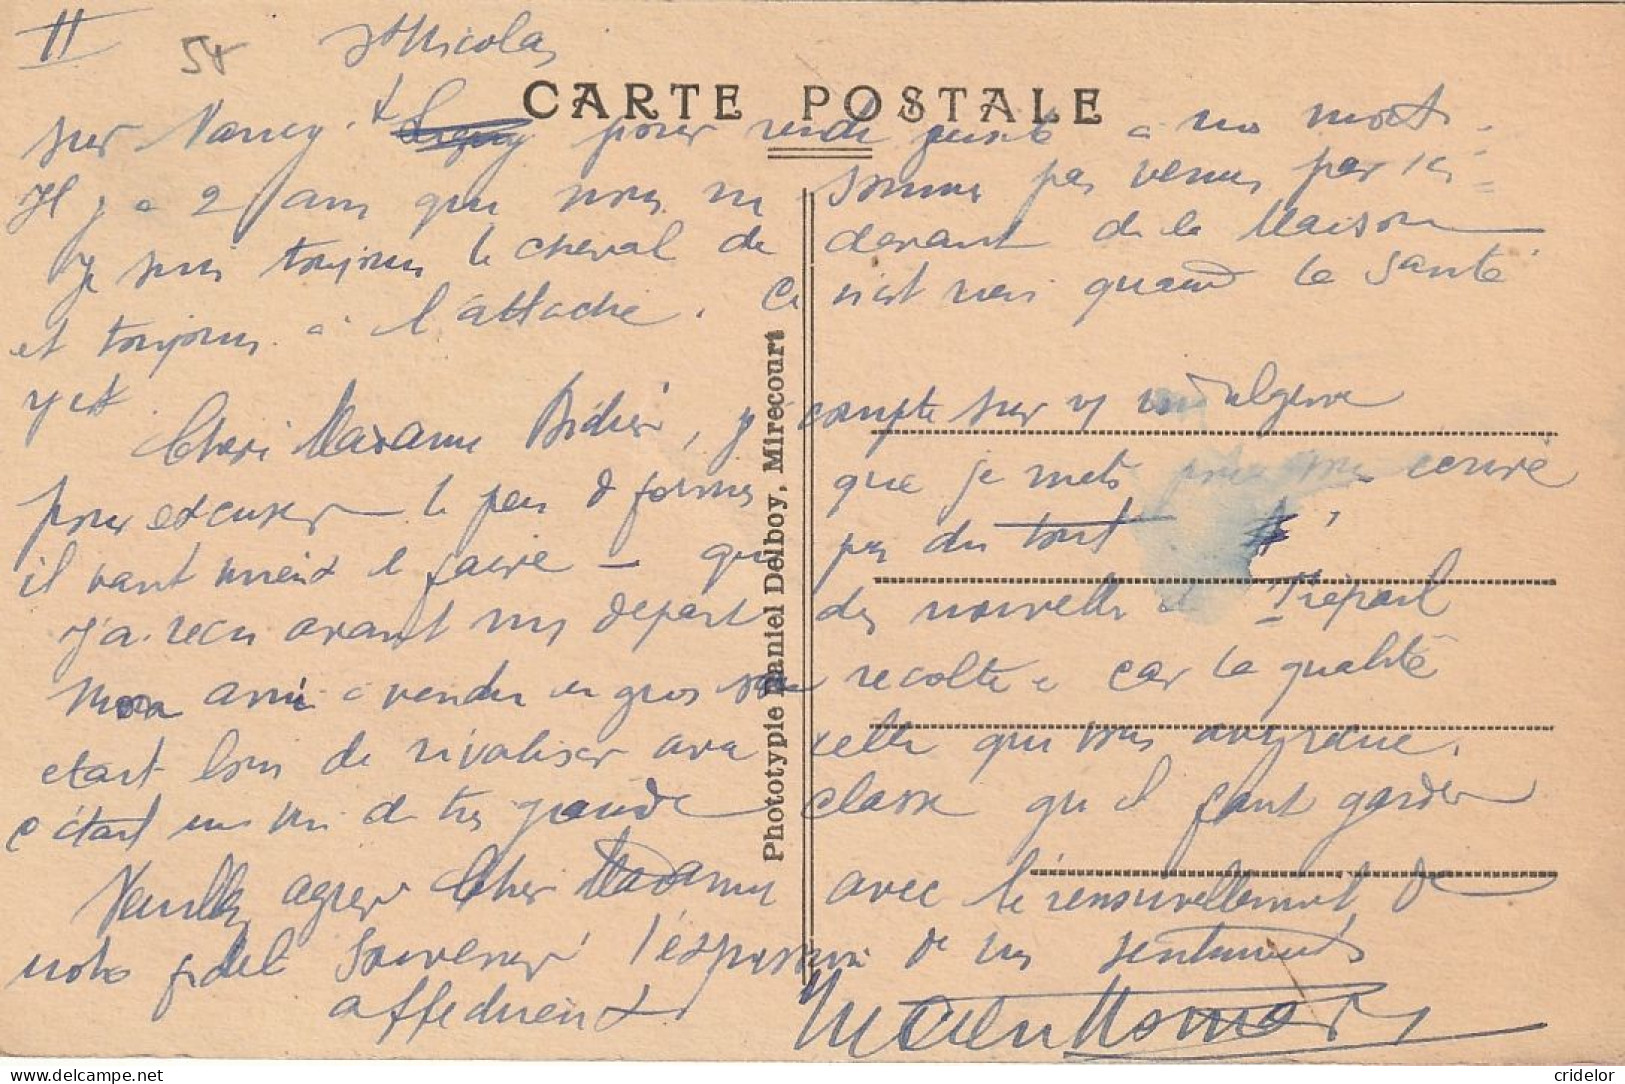 II 58 St Nicolas
CARTE POSTALE
sur Nancy. pour rendre visite à nos morts.
Il y a 2 ans que nous ne sommes pas venus par ici
je suis toujours le cheval de devant de la Maison
et toujours à l'attache. Ce n'est rien quand la santé
y est.
Chère Madame Didier, je compte sur v/ indulgence
pour excuser le peu de formes que je mets pour écrire
il vaut mieux le faire – que pas du tout
J'ai reçu avant mon départ des nouvelles de Trépail
Mon ami a vendu en gros sa recolte car la qualité
etait loin de rivaliser avec celle que vous avez eue.
c'était un vin de très grande classe qu'il faut garder
Veuillez agréer Chère Madame avec le renouvellement de
notre fidèle souvenir l'expression de nos sentiments
affectueux
Phototypie Daniel Delboy, Mirecourt
© cridelor
delcampe.net